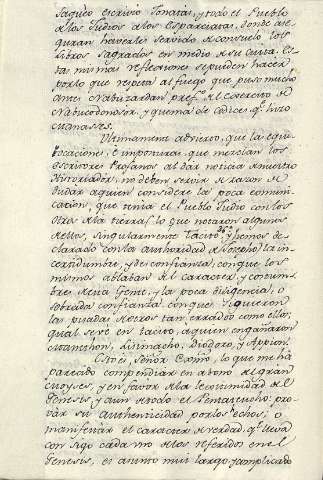 saques escrivio Jonatas, y todo el Pueblo
de los Judios a los Espartiatas, donde ase-
guran haverles servido de consuelo los
Libros sagrados en medio de su cuita. Es-
tas mismas reflexiones se pueden hacer
por lo que respeta al fuego que puso mucho
antes Nabuzardan pref.to del Exercito de
Nabucodonosor, y quema de codices q.e hizo
Manasses.
Ultimamente advierto, que las equi-
vocaciones, e imposturas que mezclan los
escritores Profanos al dar noticia de nuestro
Historiador, no deben servir de razon de
dudar a quien considere la poca comuni-
cacion, que tenia el Pueblo Judio con los
otros de la tierra, lo que notaron algunos
de ellos, singularmente Tacito, y hemos de-
clarado con la authoridad de Josepho la in-
certidumbre, y desconfianza, con que los
mismos ablaban del caracter, y costum-
bres de esta Gente, y la poca diligencia, o
sobrada confianza con que siguieron
las pisadas de otros tan errados como ellos,
qual se ve en Tacito, a quien engañaron
Manethon, Lisimacho, Diodoro, y Appion.
Esto es, Señor Exmo, lo que me ha
parecido compendiar en abono del gran
Moyses, y en favor de la legitimidad del
Genesis, y aun de todo el Pentateucho: pro-
var su authenticidad por los echos, o
manifestar el caracter de verdad q.e lleva
con sigo cada uno de los referidos en el
Genesis, es asunto mui largo, y complicado